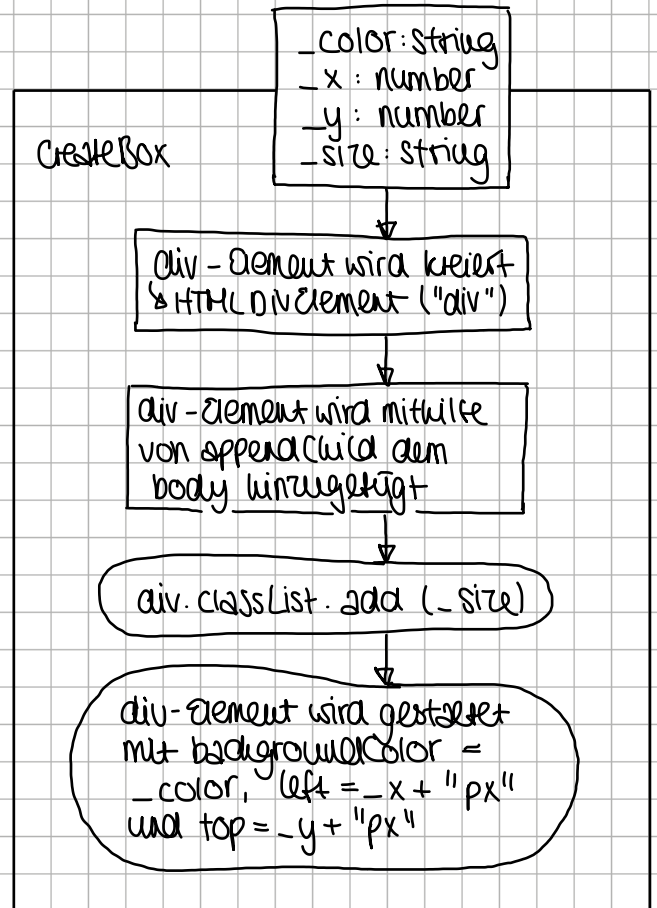 _color: string
_x : number
_y : number
_size: string
CreateBox
div-Element wird kreiert
↳ HTMLDivElement ("div")
div-Element wird mithilfe
von appendChild dem
body hinzugefügt
div.classList.add (_size)
div-Element wird gestaltet
mit backgroundColor =
_color, left = _x + "px"
und top = _y + "px"